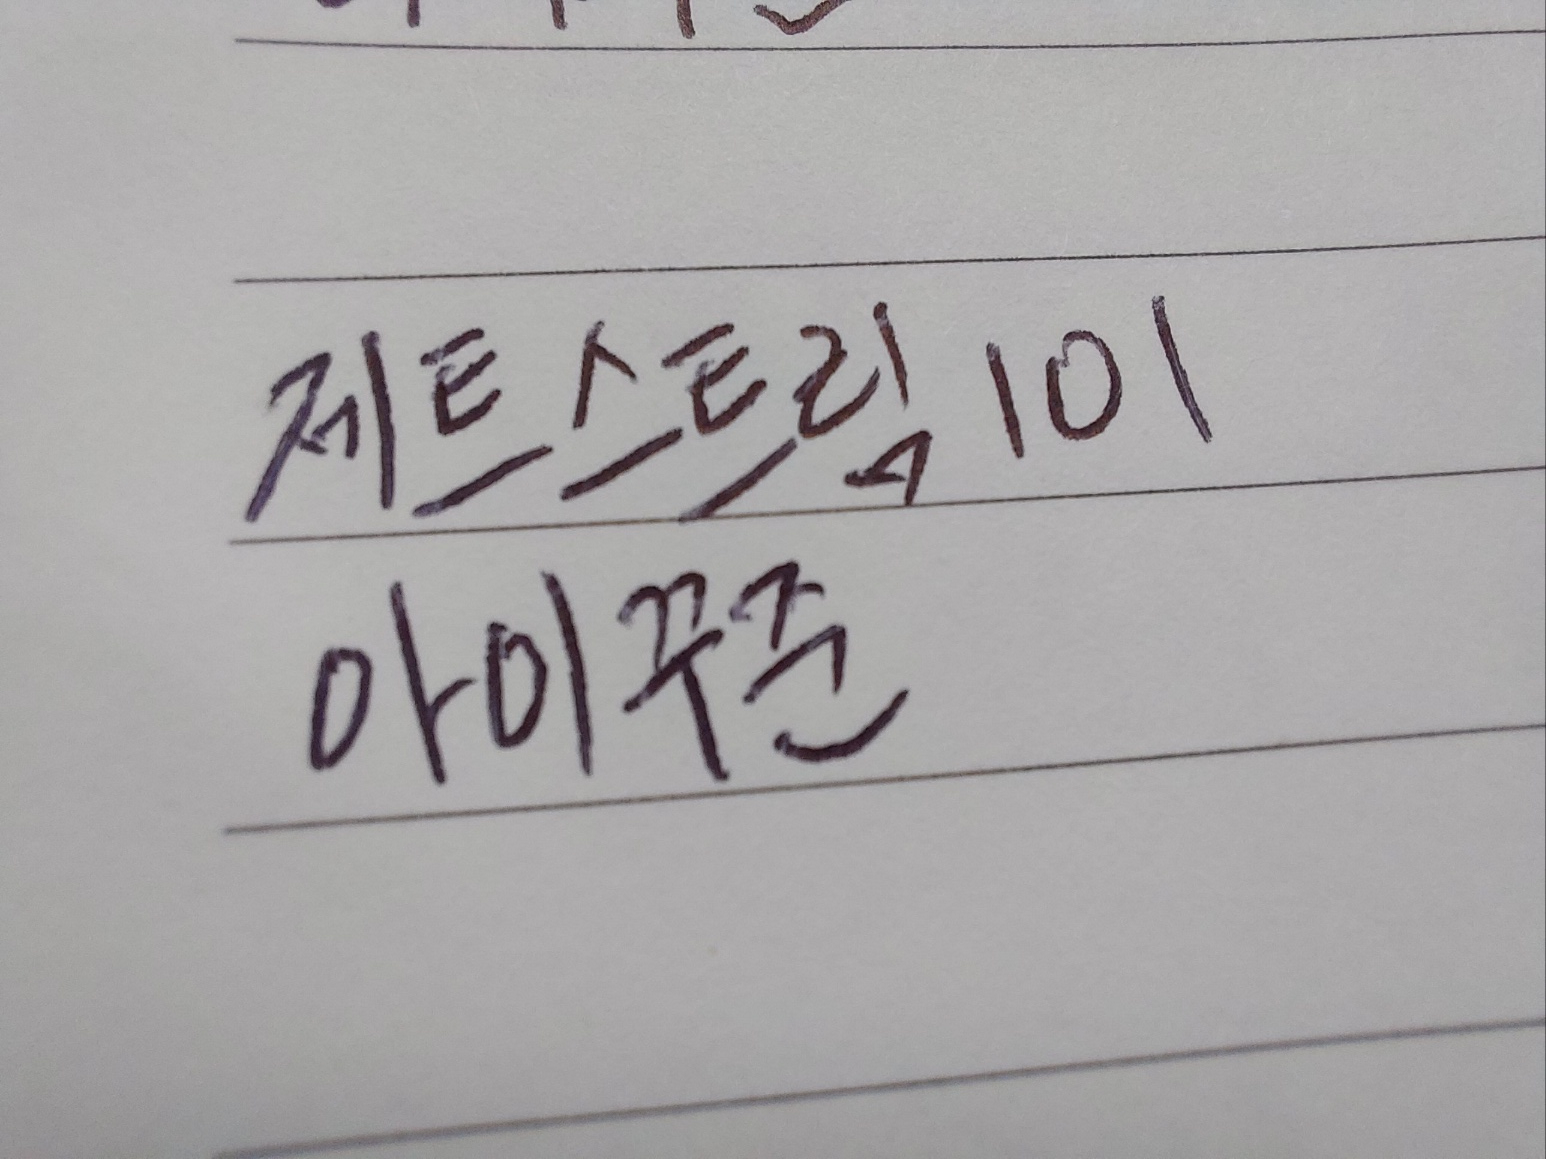 제트스트림 101
아이꾸준